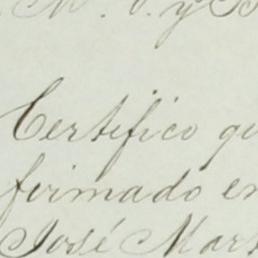 M. P. y B
Certifico qu
firmado en
José Mart